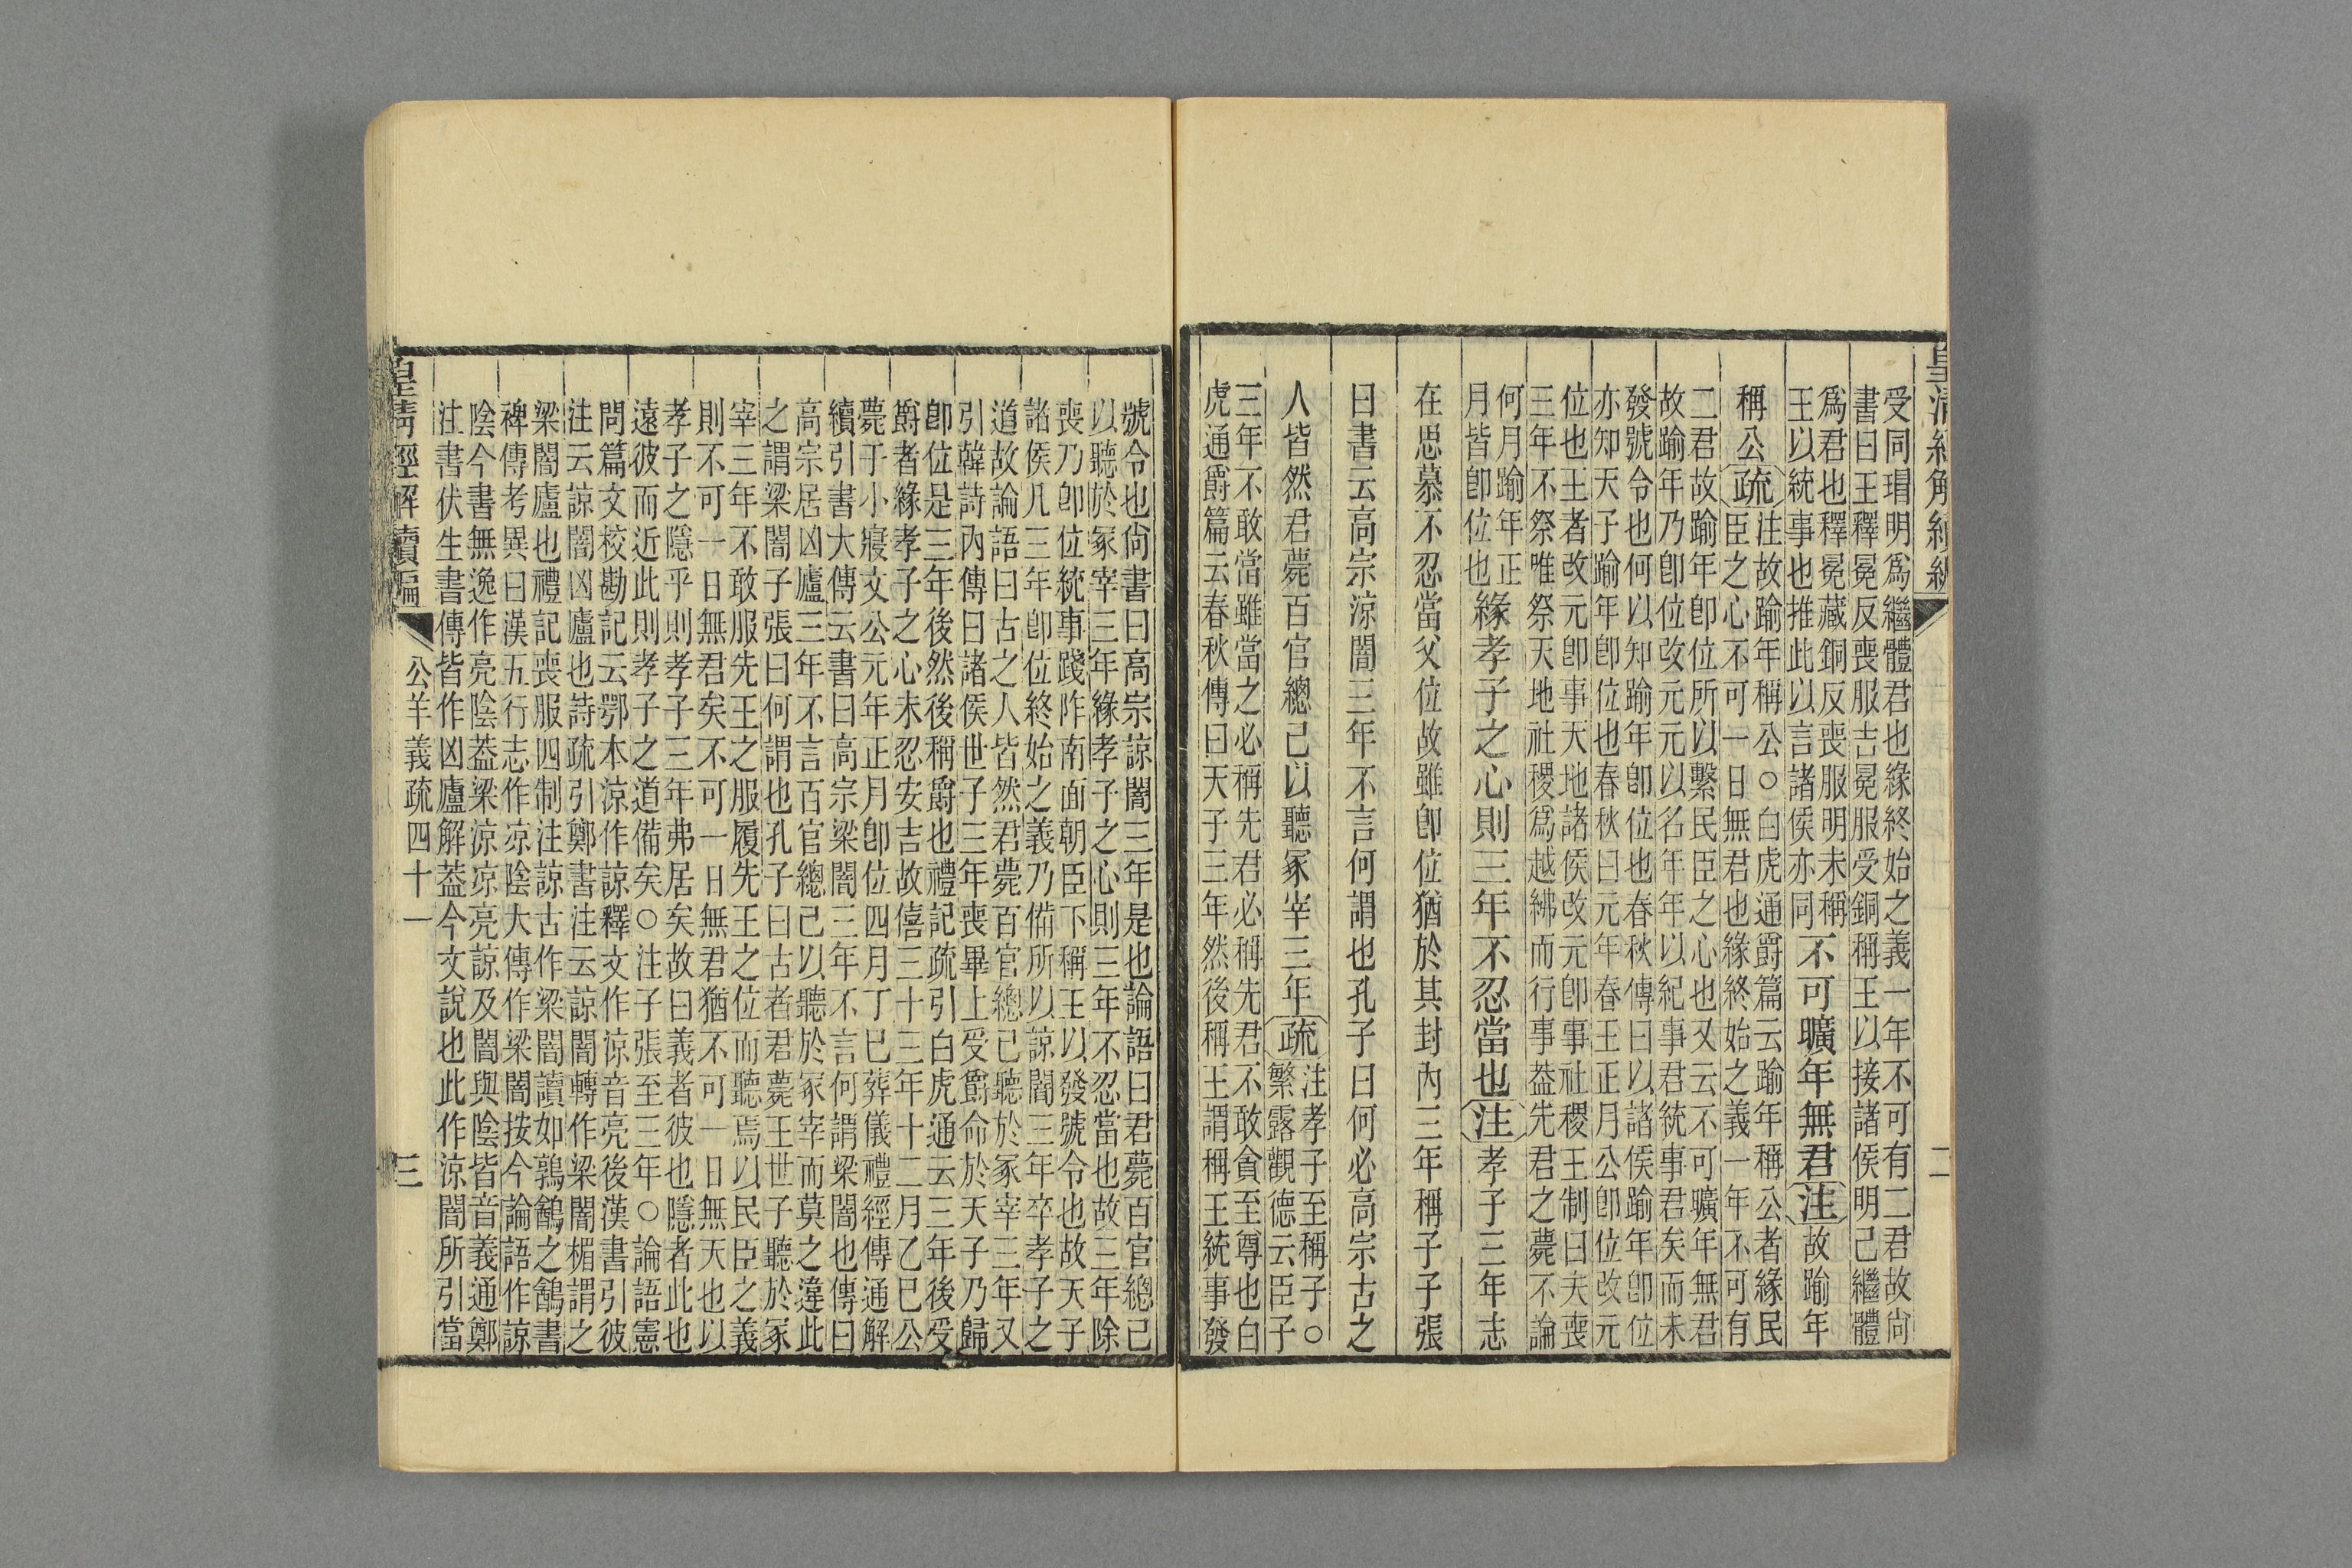 皇清經解續編
二
受同瑁明爲繼體君也緣終始之義一年不可有二君故尙
書曰王釋冕反喪服吉冕服受銅稱王以接諸侯明己繼體
爲君也釋冕藏銅反喪服明未稱
王以統事也推此以言諸侯亦同
不可曠年無君注故踰年
稱公疏
注故踰年稱公○白虎通爵篇云踰年稱公者緣民
臣之心不可一日無君也緣終始之義一年不可有
二君故踰年卽位所以繫民臣之心也又云不可曠年無君
故踰年乃卽位改元元以名年年以紀事君統事君矣而未
發號令也何以知踰年卽位也春秋傳曰以諸侯踰年卽位
亦知天子踰年卽位也春秋曰元年春王正月公卽位改元
位也王者改元卽事天地諸侯改元卽事社稷王制曰夫喪
三年不祭唯祭天地社稷爲越紼而行事葢先君之薨不論
何月踰年正
月皆卽位也
緣孝子之心則三年不忍當也注孝子三年志
在思慕不忍當父位故雖卽位猶於其封內三年稱子子張
曰書云高宗涼闇三年不言何謂也孔子曰何必高宗古之
人皆然君薨百官總己以聽冢宰三年疏
注孝子至稱子○
繁露觀德云臣子
三年不敢當雖當之必稱先君必稱先君不敢貪至尊也白
虎通爵篇云春秋傳曰天子三年然後稱王謂稱王統事發
號令也尙書曰高宗諒闇三年是也論語曰君薨百官總己
以聽於冢宰三年緣孝子之心則三年不忍當也故三年除
喪乃卽位統事踐阼南面朝臣下稱王以發號令也故天子
諸侯凡三年卽位終始之義乃備所以諒闇三年卒孝子之
道故論語曰古之人皆然君薨百官總己聽於冢宰三年又
引韓詩內傳曰諸侯世子三年喪畢上受爵命於天子乃歸
卽位是三年後然後稱爵也禮記疏引白虎通云三年後受
爵者緣孝子之心未忍安吉故僖三十三年十二月乙巳公
薨于小寢文公元年正月卽位四月丁巳葬儀禮經傳通解
續引書大傳云書曰高宗梁闇三年不言何謂梁闇也傳曰
高宗居凶廬三年不言百官總己以聽於冢宰而莫之違此
之謂梁闇子張曰何謂也孔子曰古者君薨王世子聽於冢
宰三年不敢服先王之服履先王之位而聽焉以民臣之義
則不可一日無君矣不可一日無君猶不可一日無天也以
孝子之隱乎則孝子三年弗居矣故曰義者彼也隱者此也
遠彼而近此則孝子之道備矣○注子張至三年○論語憲
問篇文校勘記云鄂本涼作諒釋文作涼音亮後漢書引彼
注云諒闇凶廬也詩疏引鄭書注云諒闇轉作梁闇楣謂之
梁闇廬也禮記喪服四制注諒古作梁闇讀如鶉鷂之鷂書
禆傳考異曰漢五行志作凉陰大傳作梁闇按今論語作諒
陰今書無逸作亮陰葢梁涼凉亮諒及闇與陰皆音義通鄭
注書伏生書傳皆作凶廬解葢今文說也此作涼闇所引當
皇清經解續編
公羊義疏四十一
三